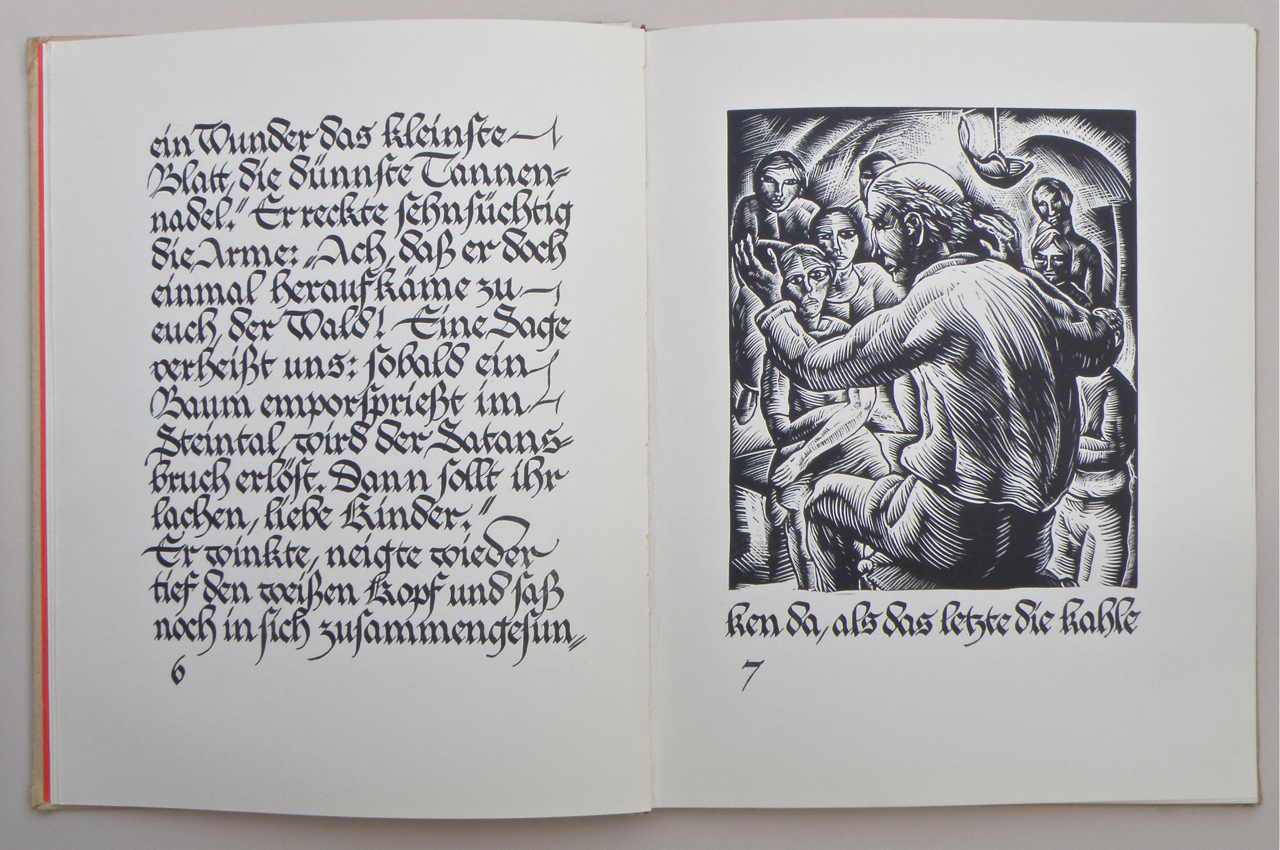 ein Wunder das kleinste
Blatt, die dünnste Tannen-
nadel.“ Er reckte sehnsüchtig
die Arme: „Ach, daß er doch
einmal heraufkäme zu
euch, der Wald! Eine Sage
verheißt uns: sobald ein
Baum emporsprießt im
Steintal, wird der Satans-
bruch erlöst. Dann sollt ihr
lachen, liebe Kinder.“
Er winkte, neigte wieder
tief den weißen Kopf und saß
noch in sich zusammengesun-
6
ken da, als das letzte die kahle
7